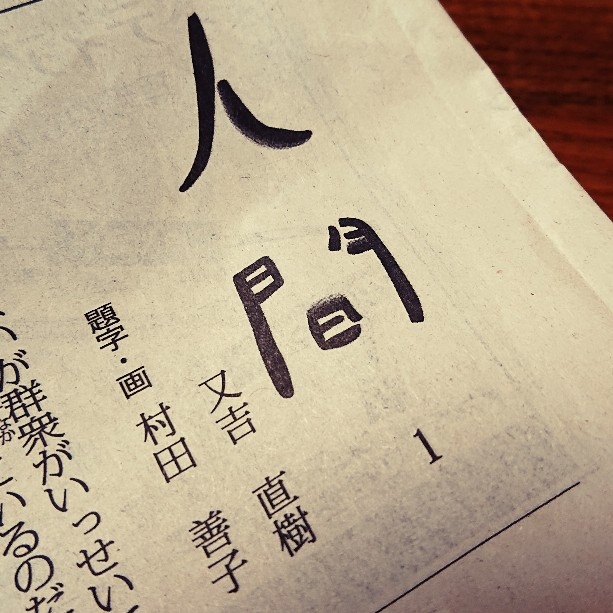 人間
1
又吉 直樹
題字・画 村田 善子
群衆がいっせい
いるのだ